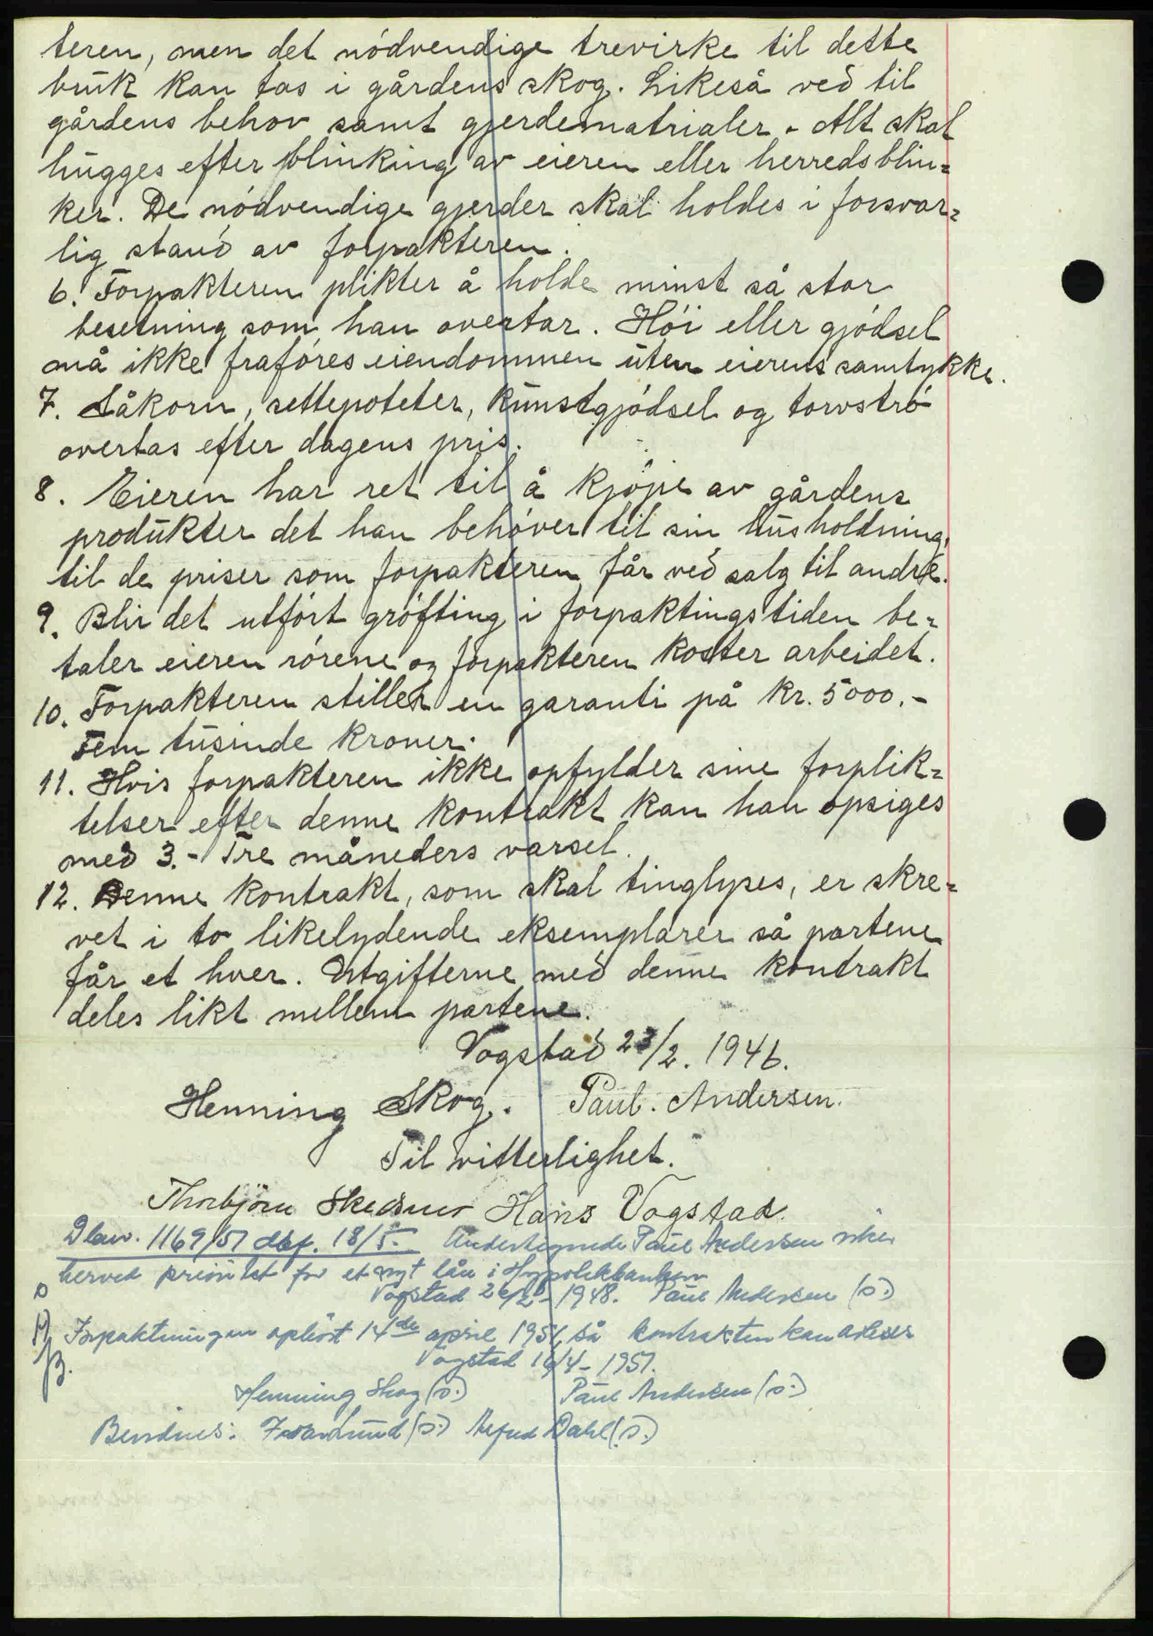 teren, men det nödvendige trevirke til dette
bruk kan tas i gårdens skog. Likeså ved til
gårdens behov samt gjerdematrialer. Alt skal
hugges efter blinking av eieren eller herredsblin=
ker. De nödvendige gjerder skal holdes i forsvar=
lig stand av forpakteren.
6. Forpakteren plikter å holde minst så stor
besetning som han overtar. Höi eller gjödsel
må ikke fraföres eiendommen uten eierens samtykke.
7. Såkorn, settepoteter, kunstgjödsel og torvströ
overtas efter dagens pris.
8. Eieren har ret til å kjöpe av gårdens
produkter det han behöver til sin husholdning,
til de priser som forpakteren får ved salg til andre.
9. Blir det utfört gröfting i forpaktingstiden be=
taler eieren rörene og forpakteren koster arbeidet.
10. Forpakteren stiller en garanti på kr. 5000.-
Fem tusinde kroner.
11. Hvis forpakteren ikke opfylder sine forplik=
telser efter denne kontrakt kan han opsiges
med 3.- Tre måneders varsel.
12. Denne kontrakt, som skal tinglyses, er skre=
vet i to likelydende eksemplarer så partene
får et hver. Utgifterne med denne kontrakt
deles likt mellem partene.
Vogstad 23/2. 1946.
Henning Skog. Paul. Andersen.
Til vitterlighet.
Thorbjörn Skedsmo Hans Vogstad.
1169/51 18/5.- Undertegnede Paul Andersen viker
herved prioritet for et nyt lån i Hypotekbanken
Vogstad 26/2- 1948. Paul Andersen (s.)
Forpaktningen ophört 14de april 1951, så kontrakten kan avleses
Vogstad 16/4- 1951.
Henning Skog (s.) Paul Andersen (s.)
Alfred Dahl (s.)